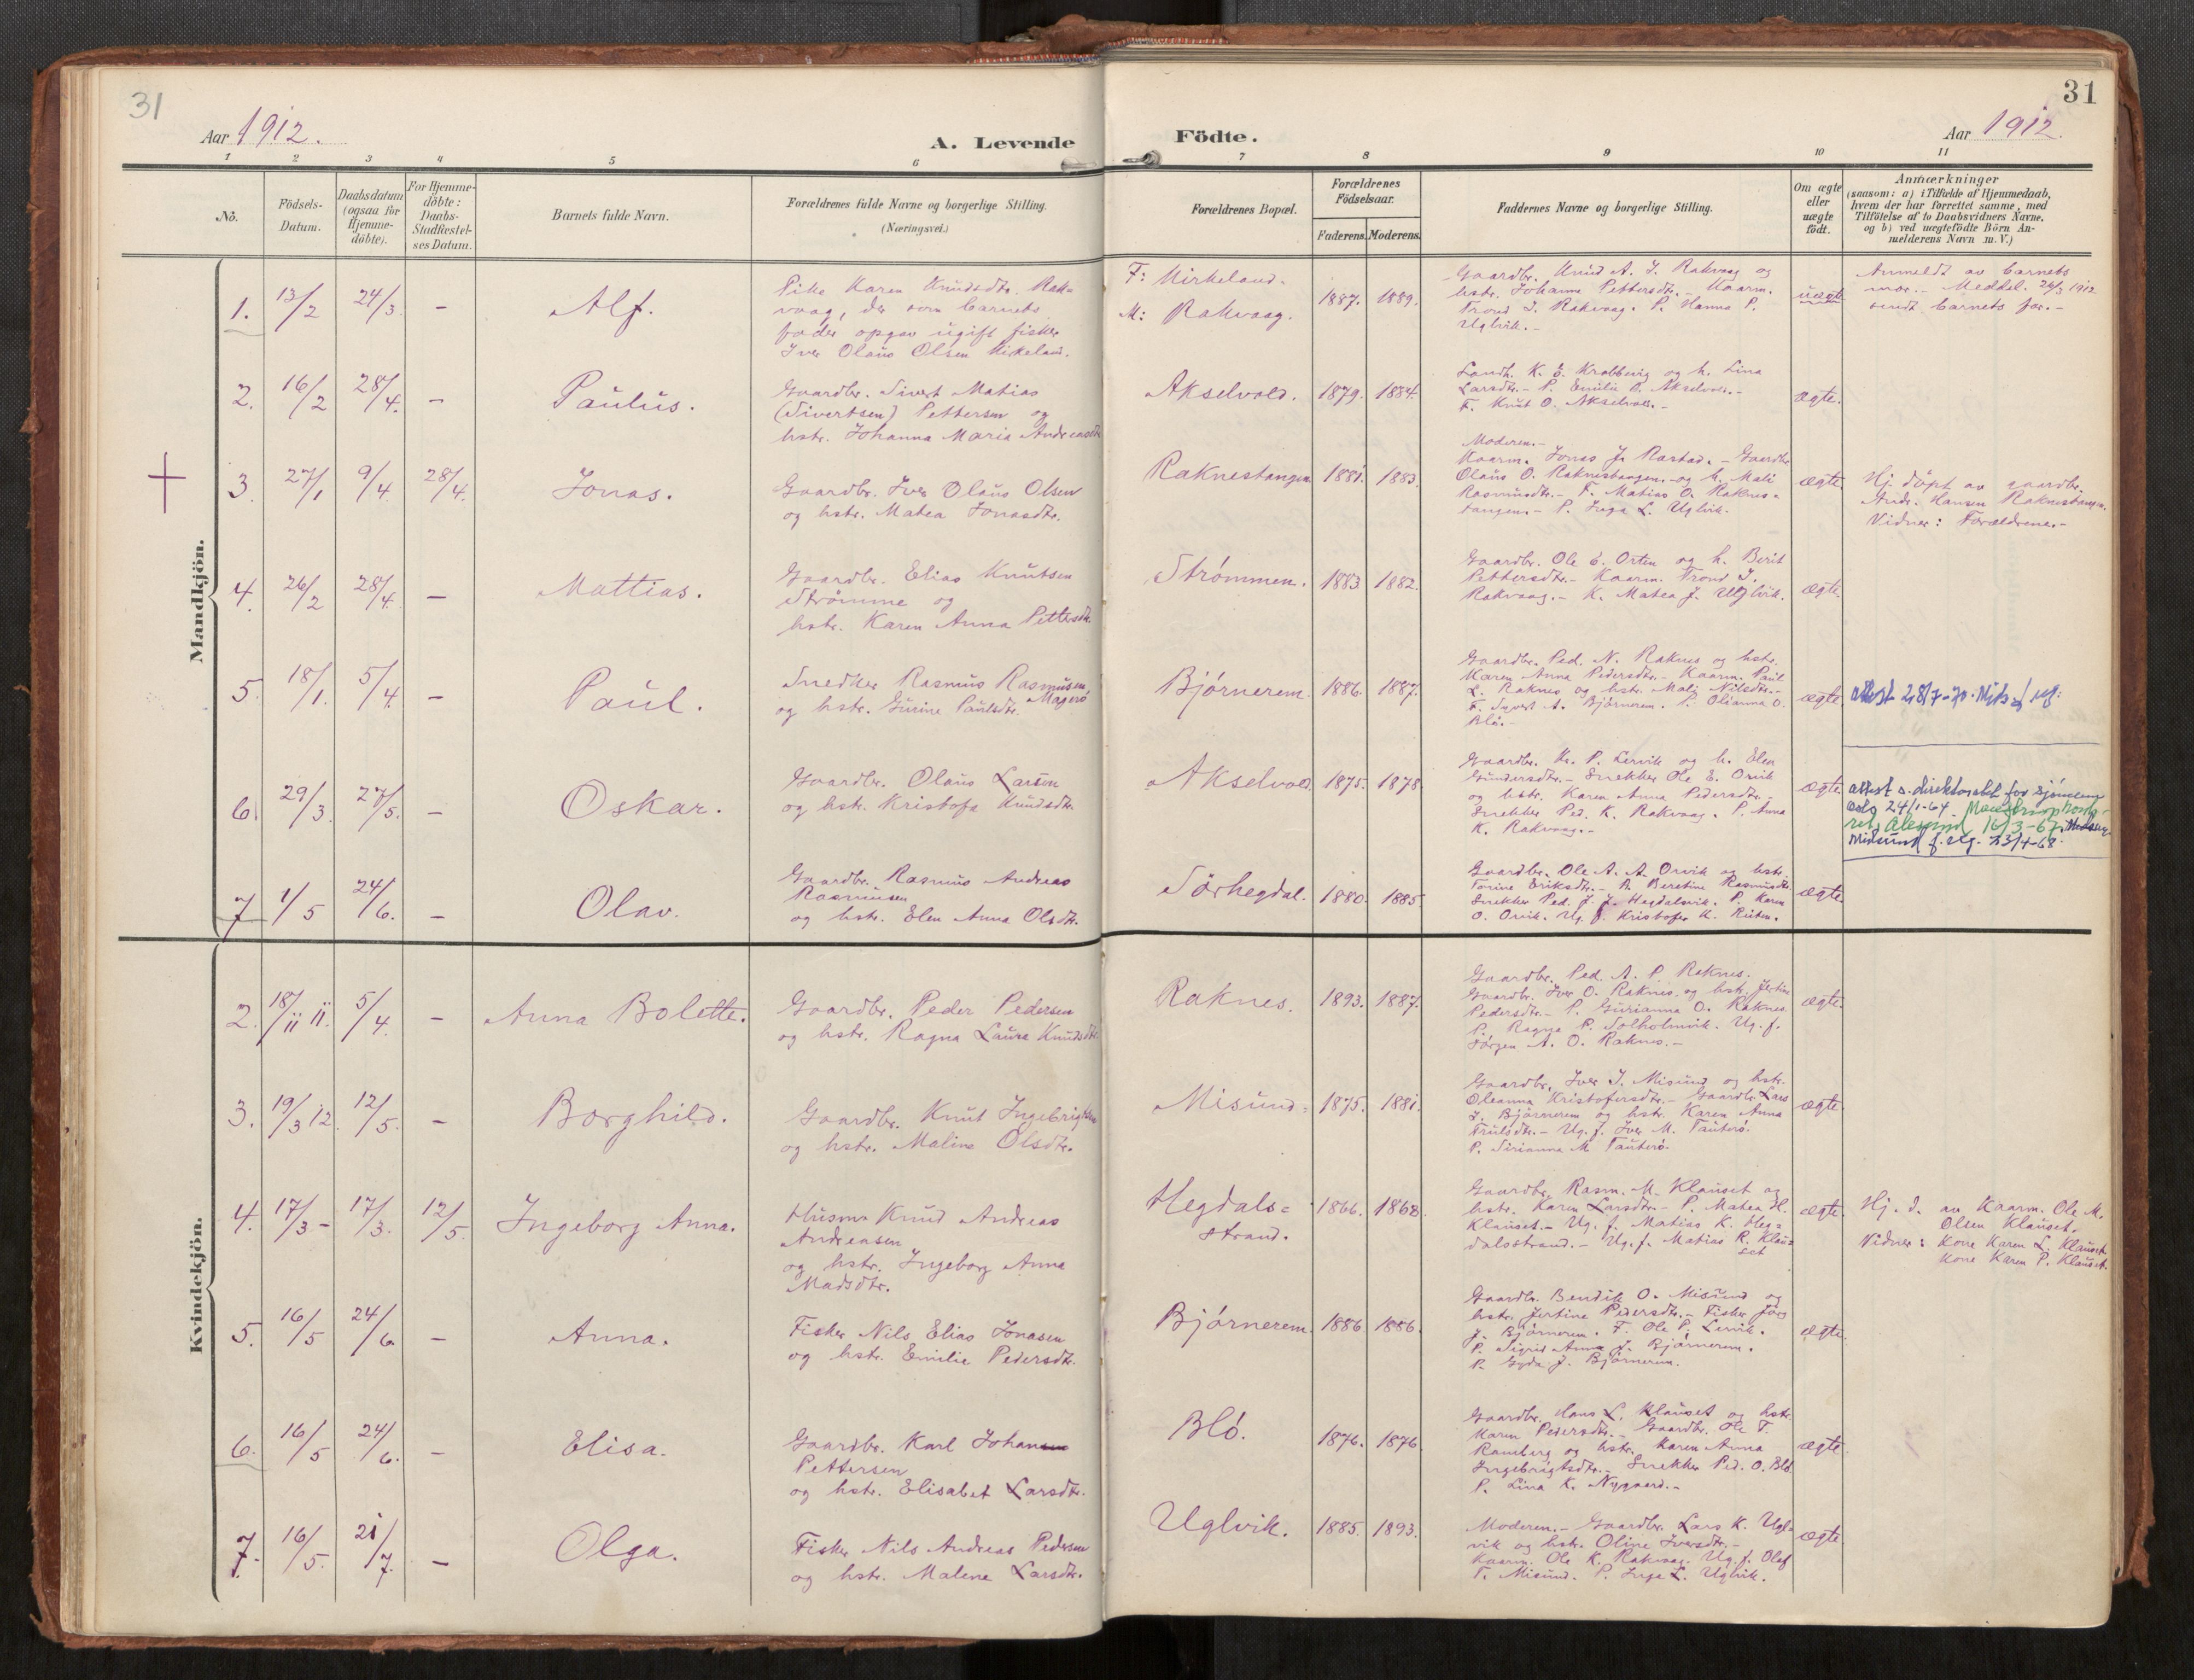 31
31
Aar 1912.
A. Levende
Födte.
Aar 1912.
1 2 3 4 5 6 7 8 9 10 11
No.
Födsels-
Datum.
Daabsdatum
(ogsaa for
Hjemme-
döbte).
For Hjemme-
döbte:
Daabs-
Stadfæstel-
ses Datum.
Barnets fulde Navn.
Forældrenes fulde Navne og borgerlige Stilling.
(Næringsvei.)
Forældrenes Bopæl.
Forældrenes
Födselsaar.
Faderens. Moderens.
Faddernes Navne og borgerlige Stilling.
Om ægte
eller
uægte
födt.
Anmærkninger
(saasom: a) i Tilfælde af Hjemmedaab,
hvem der har forrettet samme, med
Tilföielse af to Daabsvidners Navne,
og b) ved uægtefödte Börn An-
melderens Navn m. V.)
Mandkjön.
1. 13/2 24/3 - Alf.
Pike Karen Knudsdtr. Rak-
vaag, der som barnets
fader opgav ugift fisker
Iver Olaus Olsen
F:
M: Rakvaag.
1887. 1889.
Gaardbr. Knud A. I. Rakvaag og
hstr. Johanne Pettersdtr. - Kaarm.
Trond I. Rakvaag. P. Hanna P.
Uglvik. -
uægte
Anmeldt av barnets
mor. - Meddel. 24/3 1912
sendt barnets far. -
2. 16/2 28/4. - Paulus.
Gaardbr. Sivert Matias
(Sivertsen) Pettersen og
hstr. Johanna Maria Andreasdtr.
Akselvold. 1879. 1884.
Landh. K. E. Krabbevig og h. Lina
Larsdtr. - P. Emilie Akselvold. -
F. Knut O. Akselvold. -
ægte.
3. 27/1 9/4 28/4. Jonas.
Gaardbr. Iver Olaus Olsen
og hstr. Matea Jonasdtr.
Raknestangen 1881. 1883.
Moderen. -
Kaarm. Jonas J. Rastad. - Gaardbr.
Olaus O. Raknestangen. og h. Mali
Rasmusdtr. - F. Matias O. Raknes-
tangen. - P. Inga L. Uglvik.
ægte
Hj. döpt av gaardbr.
Andr. Hansen Raknestangen.
Vidner: Forældrene. -
4. 26/2 28/4. - Mattias.
Gaardbr. Elias Knutsen
Strømme og
hstr. Karen Anna Pettersdtr.
Strømmen. 1883 1882.
Gaardbr. Ole E. Orten og h. Berit
Pettersdtr. - Kaarm. Trond I.
Rakvaag. - K. Matea J. Uglvik.
ægte.
5. 18/1. 5/4 - Paul.
Snedker Rasmus Rasmusen
Magerö
og hstr. Gurine Paulsdtr.
Bjørnerem. 1886. 1887.
Gaardbr. Ped. N. Raknes og hstr.
Karen Anna Pedersdtr. - Kaarm. Paul
L. Raknes og hstr. Mali Nilsdtr. -
F. Sivert A. Bjørnerem. P. Olianna O.
Blø. -
ægte.
attest 28/7-70.
6. 29/3. 27/5. - Oskar.
Gaardbr. Olaus Larsen
og hstr. Kristofa Knudsdtr.
Akselvold 1875. 1878
Gaardbr. Kr. P. Lervik og h. Elen
Gundersdtr. - Snekker Ole E. Orvik
og hstr. Karen Anna Pedersdtr. -
Snekker Ped. K. Rakvaag. P. Anna
K. Rakvaag. -
ægte.
attest s. direktoratet for sjömenn
Oslo 24/1-64.
Ålesund 16/3-67.
Midsund f. 23/4-68.
7 1/5 24/6. - Olav.
Gaardbr. Rasmus Andreas
Rasmusen
og hstr. Elen Anna Olsdtr.
Sørhegdal. 1880. 1885
Gaardbr. Ole A. A. Orvik og hstr.
Torine Eriksdtr. - P. Beretine Rasmusdtr.
Snekker Ped. J. J. Hegdalsvik. P. Karen
O. Orvik. Ug. f. Kristofer K. Riksen.
ægte
Kvindekjön.
2. 18/11 11. 5/4. - Anna Bolette.
Gaardbr. Peder Pedersen
og hstr. Ragna Laura Knudsdtr.
Raknes. 1893. 1887.
Gaardbr. Ped. A. P. Raknes.
Gaardbr. Iver O. Raknes. og hstr. Jertine
Pedersdtr. - P. Gurianna O. Raknes.
P. Ragna P. Solholmvik. Ug. f.
Jørgen A. O. Raknes. -
ægte
3. 19/3 12. 12/5. - Borghild.
Gaardbr. Knut Ingebrigtsen
og hstr. Malina Olsdtr.
Misund. 1875. 1881.
Gaardbr. Iver I. Misund og hstr.
Oleanna Kristofersdtr. - Gaardbr. Lars
J. Bjørnerem og hstr. Karen Anna
Trulsdtr. - Ug. f. Iver M. Tauterø.
P. Sirianna M. Tauterø.
ægte.
4. 17/3 - 17/3. 12/5. Ingeborg Anna.
Husm. Knud Andreas
Andreasen
og hstr. Ingeborg Anna
Madsdtr.
Hegdals=
strand.
1866. 1868
Gaardbr. Rasm. M. Klauset og
hstr. Karen Larsdtr. - P. Matea H.
Klauset. - Ug. f. Matias K. Heg-
dalsstrand. - Ug. f. Matias R. Klau-
set
ægte.
Hj. d. av Kaarm. Ole M.
Olsen Klauset.
Vidner: Kone Karen L. Klauset
Kone Karen P. Klauset.
5. 16/5 24/6 - Anna.
Fisker Nils Elias Jonasen
og hstr. Emilie Pedersdtr.
Bjørnerem. 1886 1886.
Gaardbr. Bendik O. Misund og
hstr. Jertine Pedersdtr. - Fisker Jörg
J. Bjørnerem. F. Ole P. Lervik.
P. Sigrid Anna J. Bjørnerem.
P. Gyda J. Bjørnerem.
ægte.
6. 16/5 24/6. - Elisa.
Gaardbr. Karl Johan
Pettersen
og hstr. Elisabet Larsdtr.
Blø. 1876. 1876
Gaardbr. Hans L. Klauset og hstr.
Maren Pedersdtr. - Gaardbr. Ole T.
Ramberg og hstr. Karen Anna
Ingebrigtsdtr. - Snekker Ped. O. Blø.
P. Lina K. Nygaard. -
ægte
7. 16/5. 21/7. - Olga.
Fisker Nils Andreas Pedersen
og hstr. Malene Larsdtr.
Uglvik. 1885. 1893.
Moderen. - Gaardbr. Lars K. Ugl-
vik og hstr. Oline Iversdtr. -
Kaarm. Ole K. Rakvaag. Ug. f. Olaf
T. Misund. P. Inga L. Uglvik.
ægte